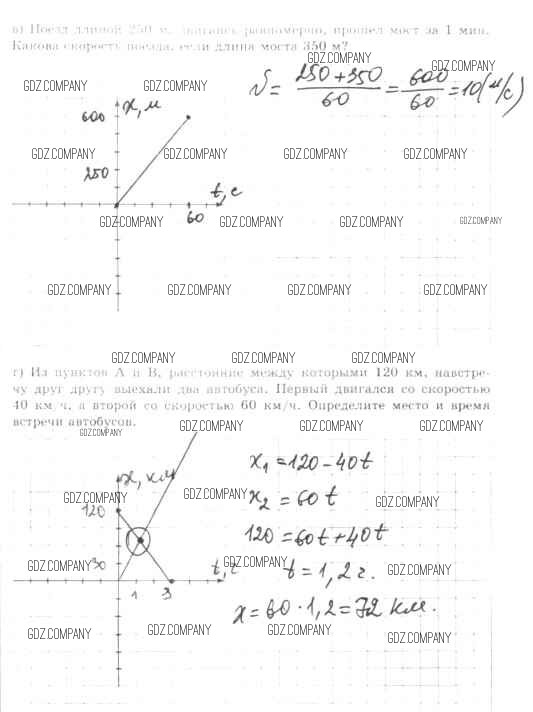 в) Поезд длиной 250 м, двигаясь равномерно, прошел мост за 1 мин.
Какова скорость поезда, если длина моста 350 м?
GDZ.COMPANY GDZ.COMPANY GDZ.COMPANY GDZ.COMPANY
v = (250+350)/60 = 600/60 = 10 (м/с)
600 x, м
GDZ.COMPANY GDZ.COMPANY GDZ.COMPANY GDZ.COMPANY
250
t, с
60
GDZ.COMPANY GDZ.COMPANY GDZ.COMPANY GDZ.COMPANY
GDZ.COMPANY GDZ.COMPANY GDZ.COMPANY GDZ.COMPANY
GDZ.COMPANY GDZ.COMPANY GDZ.COMPANY
г) Из пунктов А и В, расстояние между которыми 120 км, навстре-
чу друг другу выехали два автобуса. Первый двигался со скоростью
40 км/ч, а второй со скоростью 60 км/ч. Определите место и время
встречи автобусов.
GDZ.COMPANY GDZ.COMPANY GDZ.COMPANY GDZ.COMPANY
x₁ = 120 - 40t
x, км
GDZ.COMPANY GDZ.COMPANY GDZ.COMPANY
x₂ = 60t
120
120 = 60t + 40t
30
GDZ.COMPANY GDZ.COMPANY GDZ.COMPANY
t, ч
t = 1,2 ч.
1 3
x = 60 · 1,2 = 72 км.
GDZ.COMPANY GDZ.COMPANY GDZ.COMPANY GDZ.COMPANY